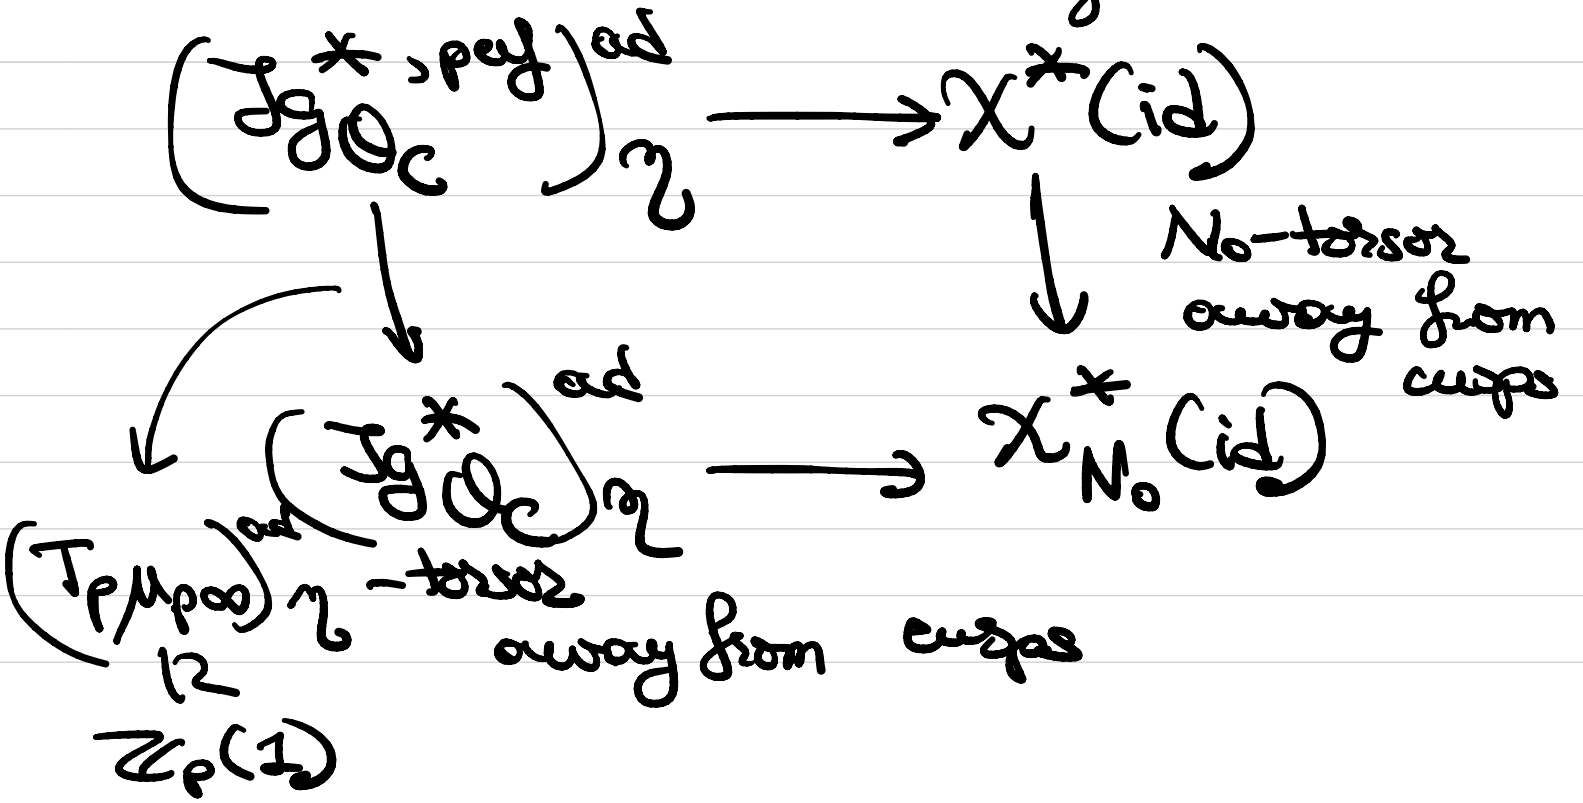 (Ig*,perf_{O_C})^{ad}_η → X*(id)
↓ ↓ N_0-torsor
away from
cusps
(Ig*_{O_C})^{ad}_η → X*_{N_0}(id)
(T_p μ_{p^∞})^{ad}_η -torsor
away from cusps
≀
ℤ_p(1)